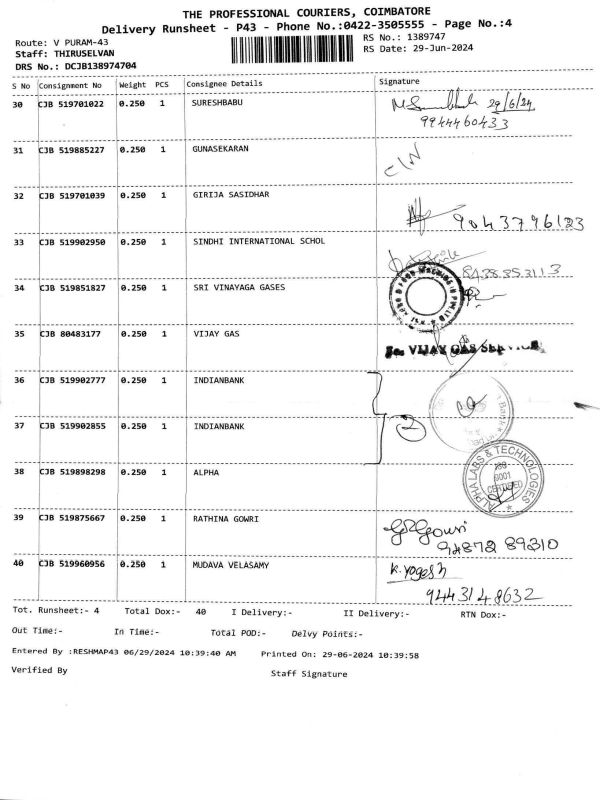 THE PROFESSIONAL COURIERS, COIMBATORE
Delivery Runsheet - P43 - Phone No.:0422-3505555 - Page No.:4
Route: V PURAM-43
Staff: THIRUSELVAN
DRS No.: DCJB138974704
RS No.: 1389747
RS Date: 29-Jun-2024
S No Consignment No Weight PCS Consignee Details Signature
30 CJB 519701022 0.250 1 SURESHBABU 29/6/24
9944460433
31 CJB 519885227 0.250 1 GUNASEKARAN
32 CJB 519701039 0.250 1 GIRIJA SASIDHAR
9043796123
33 CJB 519902950 0.250 1 SINDHI INTERNATIONAL SCHOL
8438353113
34 CJB 519851827 0.250 1 SRI VINAYAGA GASES
35 CJB 80483177 0.250 1 VIJAY GAS
VIJAY GAS
36 CJB 519902777 0.250 1 INDIANBANK
37 CJB 519902855 0.250 1 INDIANBANK 2
38 CJB 519898298 0.250 1 ALPHA
ALPHA LABS & TECHNOLOGIES
ISO
9001
CERTIFIED
39 CJB 519875667 0.250 1 RATHINA GOWRI
Gowri
94872 89310
40 CJB 519960956 0.250 1 MUDAVA VELASAMY K. Yogesh
9443148632
Tot. Runsheet:- 4 Total Dox:- 40 I Delivery:- II Delivery:- RTN Dox:-
Out Time:- In Time:- Total POD:- Delvy Points:-
Entered By :RESHMAP43 06/29/2024 10:39:40 AM Printed On: 29-06-2024 10:39:58
Verified By Staff Signature